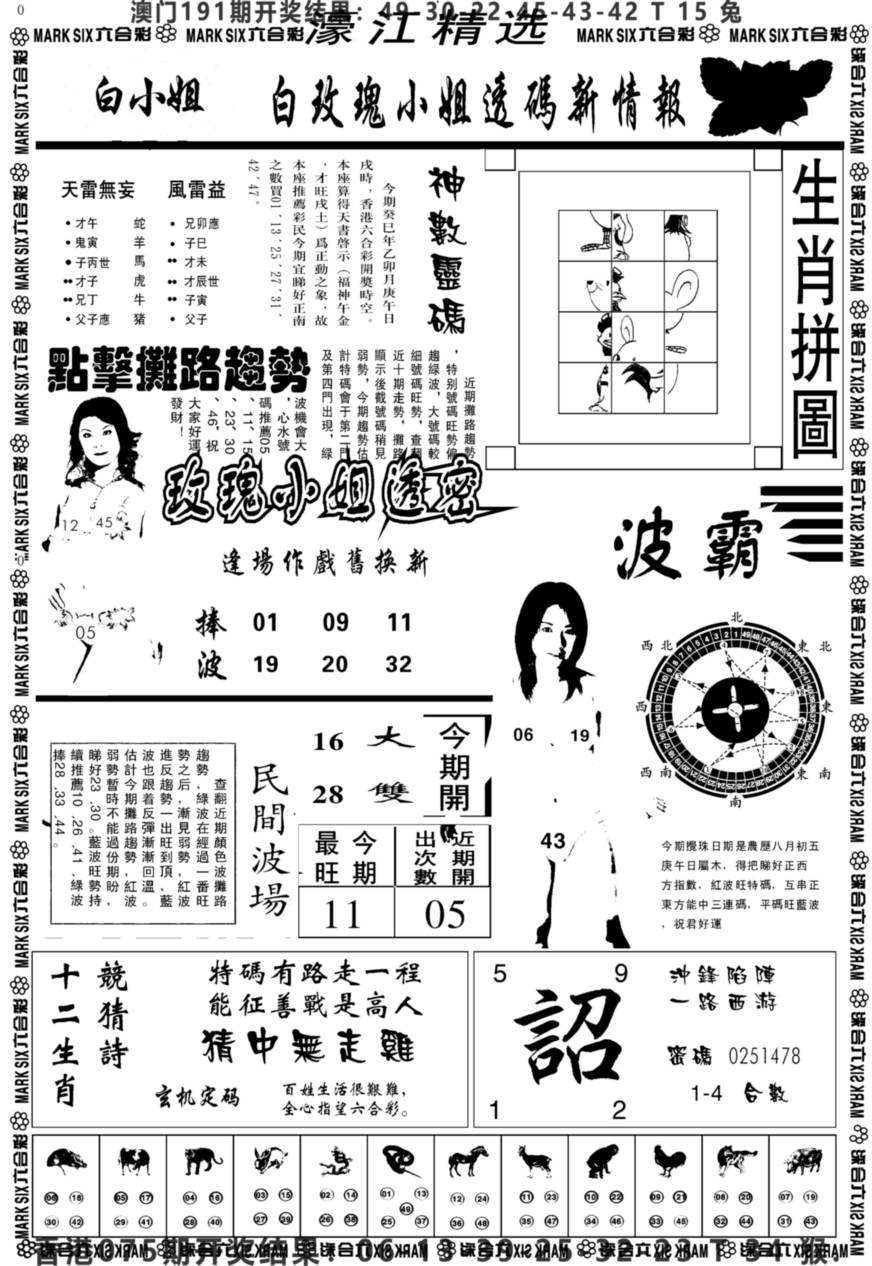 澳门191期开奖结果：49-30-22-45-43-42 T 15 兔
MARK SIX 六合彩 MARK SIX 六合彩 濠江精选 MARK SIX 六合彩 MARK SIX 六合彩
白小姐 白玫瑰小姐透碼新情報
天雷無妄 風雷益
• 才午 蛇 • 兄卯應
• 鬼寅 羊 • 子巳
● 子丙世 馬 •• 才未
•• 才子 虎 •• 才辰世
•• 兄丁 牛 •• 子寅
• 父子應 豬 • 父子
神數靈碼
今期癸巳年乙卯月庚午日
戌時，香港六合彩開獎時空。
本座算得天書啓示（福神午金
，才旺戌土）爲正動之象，故
本座推薦彩民今期宜睇好正南
之數買01、13、25、27、31、
42、47。
生肖拼圖
點擊攤路趨勢
近期攤路趨勢
，特别號碼旺勢偏
趨綠波，大號碼較
細號碼旺勢，查翻
近十期走勢，攤路
顯示後截號碼稍見
弱勢，今期趨勢估
計特碼會于第二門
及第四門出現，綠
波機會大
，心水號
碼推薦05
、11、15
、23、30
、46，祝
大家好運
發財！
12 45
05
玫瑰小姐透密
逢場作戲舊換新
捧波
01 09 11
19 20 32
波霸
06 19
43
北
西北 東北
西 東
西南 東南
南
今期攪珠日期是農歷八月初五
庚午日屬木，得把睇好正西
方指數，紅波旺特碼，互串正
東方能中三連碼，平碼旺藍波
，祝君好運
查翻近期顏色攤路
趨勢，綠波在經過一波旺
勢之后，漸見弱勢，紅番
進反趨勢一出旺到頂，藍
波也跟着反彈漸漸回溫，
估計今期攤路趨勢紅波
弱勢暫時不能過份期盼，
睇好23、30。藍波旺勢持
續推薦10、26、41，綠波
捧28、33、44。
民間波場
16 大
28 雙
今期開
最旺 今期
出次數 近期開
11 05
十二生肖
競猜詩
特碼有路走一程
能征善戰是高人
猜中無走雞
玄机定码
百姓生活很艱難，
全心指望六合彩。
5 9
詔
1 2
沖鋒陷陣
一路西游
密碼 0251478
1-4 合數
06 18 30 42
05 17 29 41
04 16 28 40
03 15 27 39
02 14 26 38
01 13 49 25 37
12 24 36 48
11 23 35 47
10 22 34 46
09 21 33 45
08 20 32 44
07 19 31 43
香港075期开奖结果：06-13-30-25-32-23 T 34 猴.